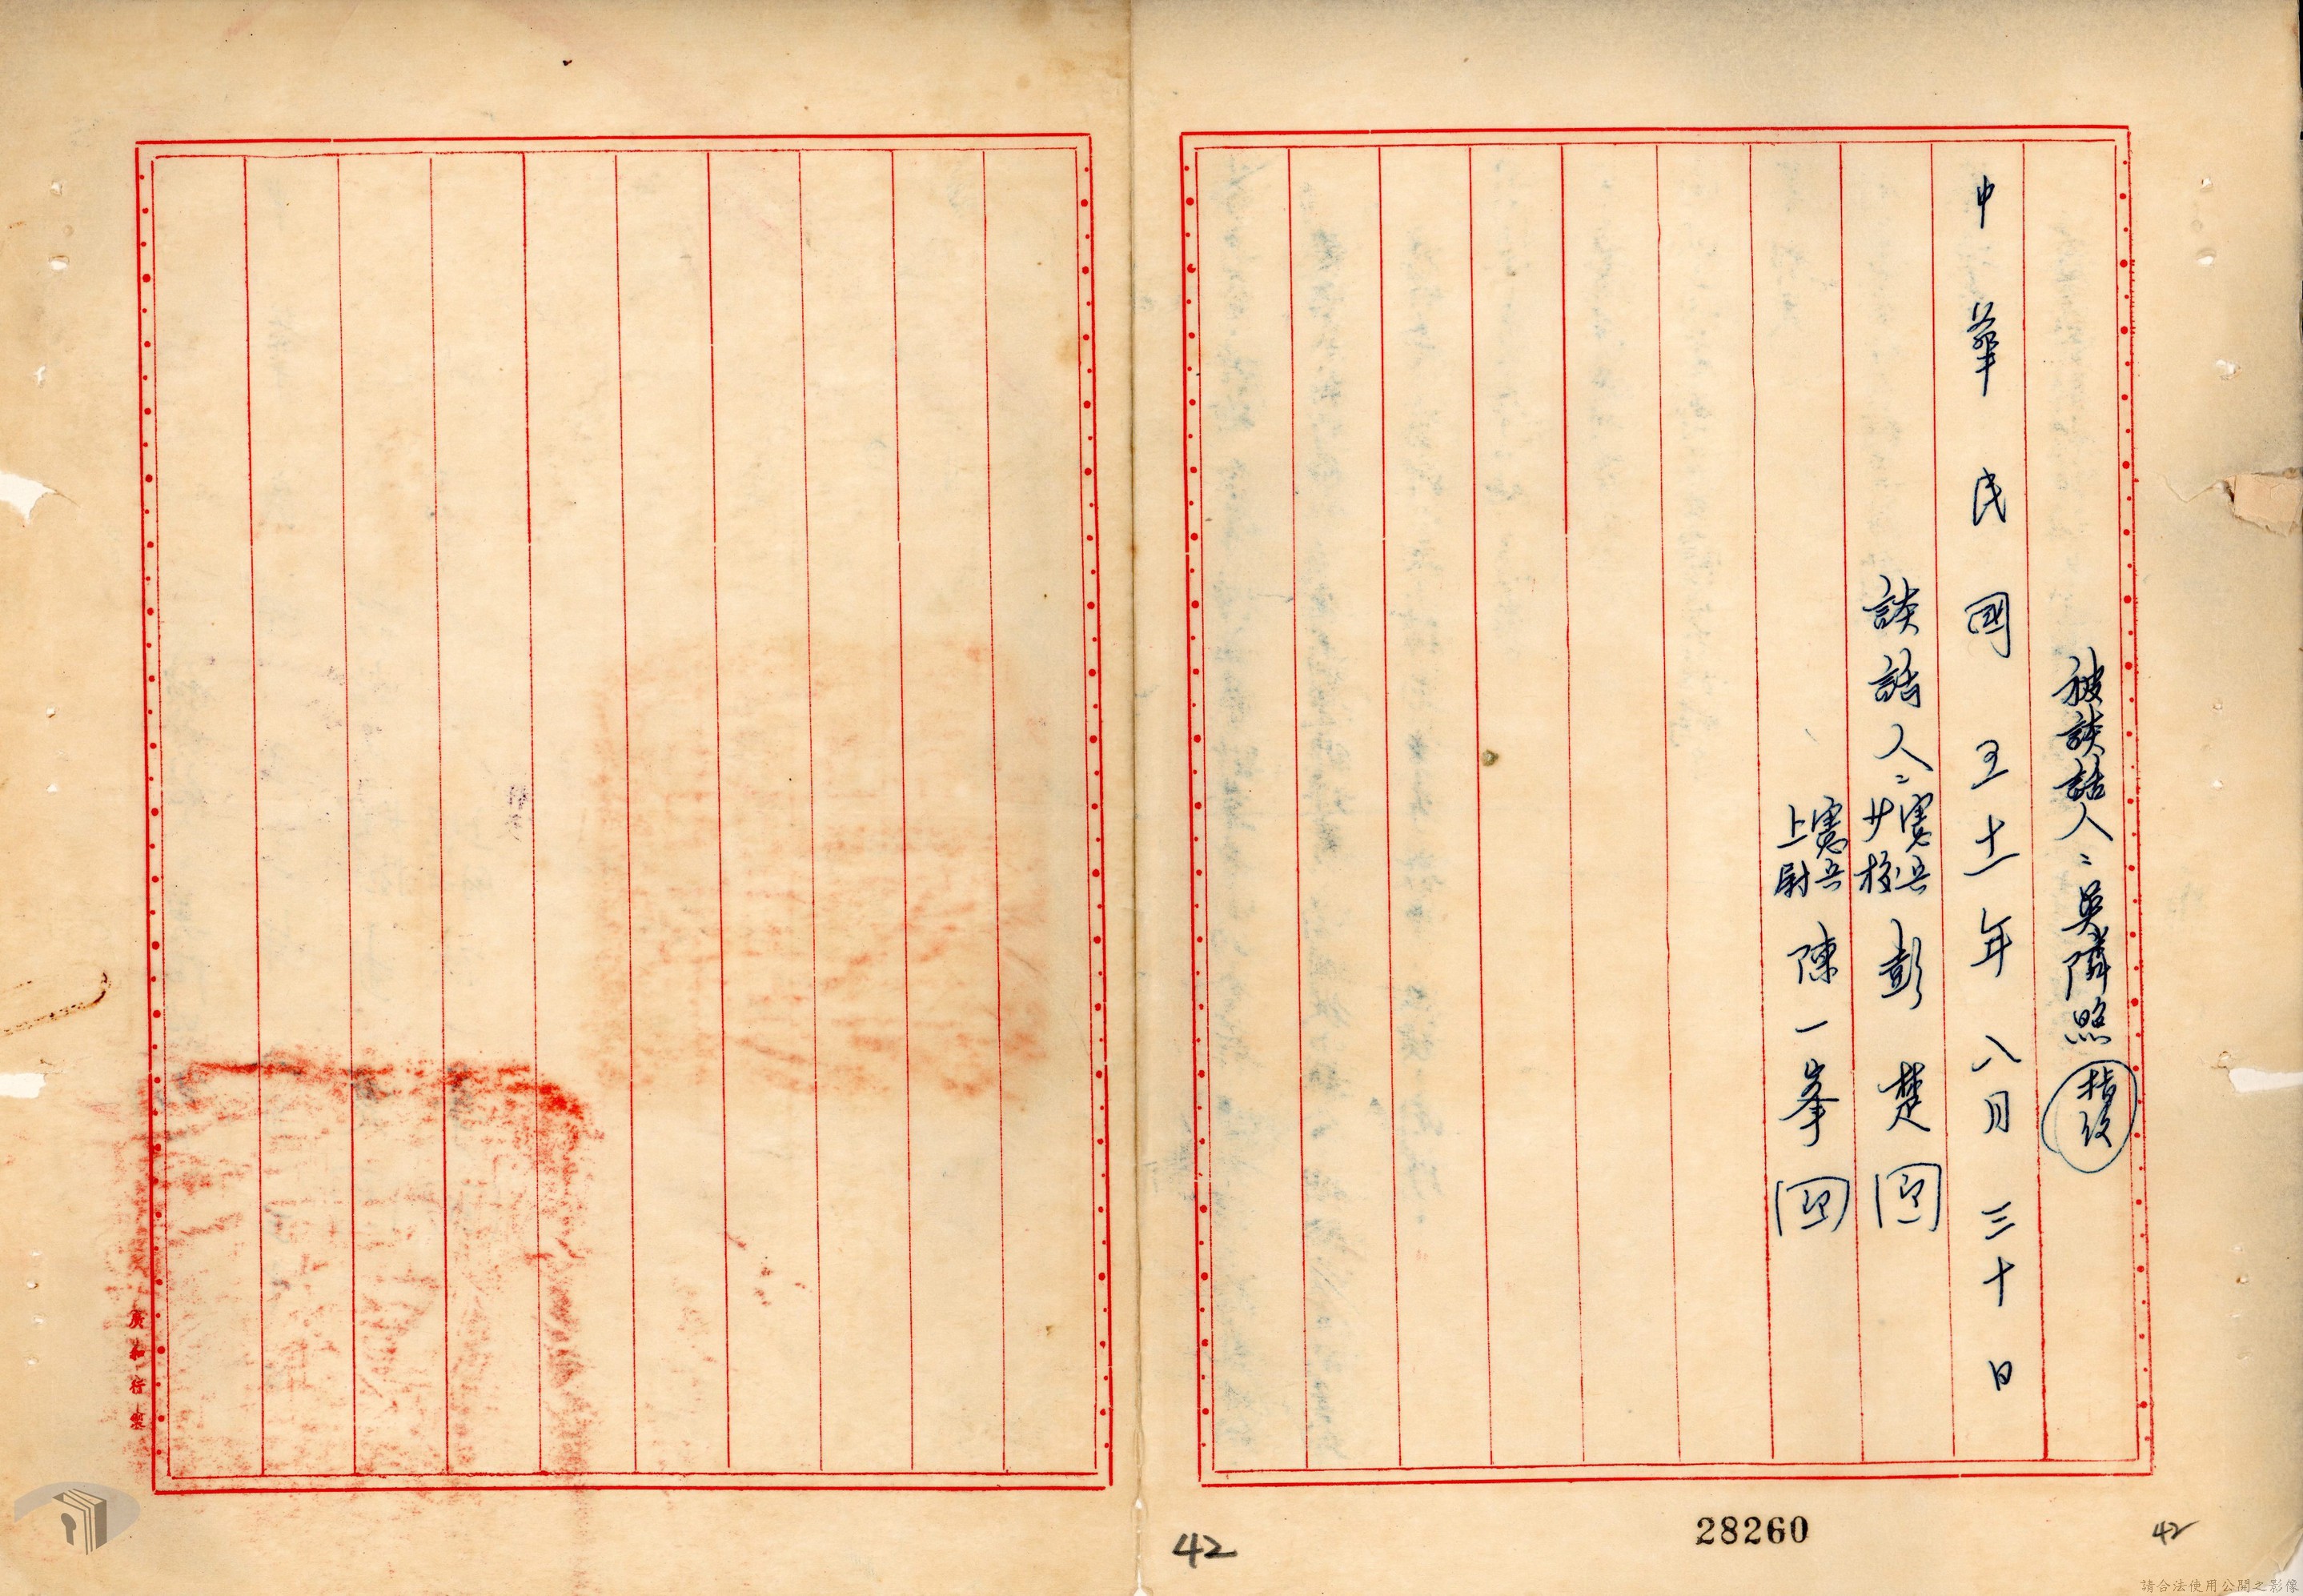 被談話人：吳隣照 指紋
中華民國五十一年八月三十日
談話人：憲兵少校 彭楚 印
憲兵上尉 陳一峯 印
28260
42
42
廣和行製
請合法使用公開之影像